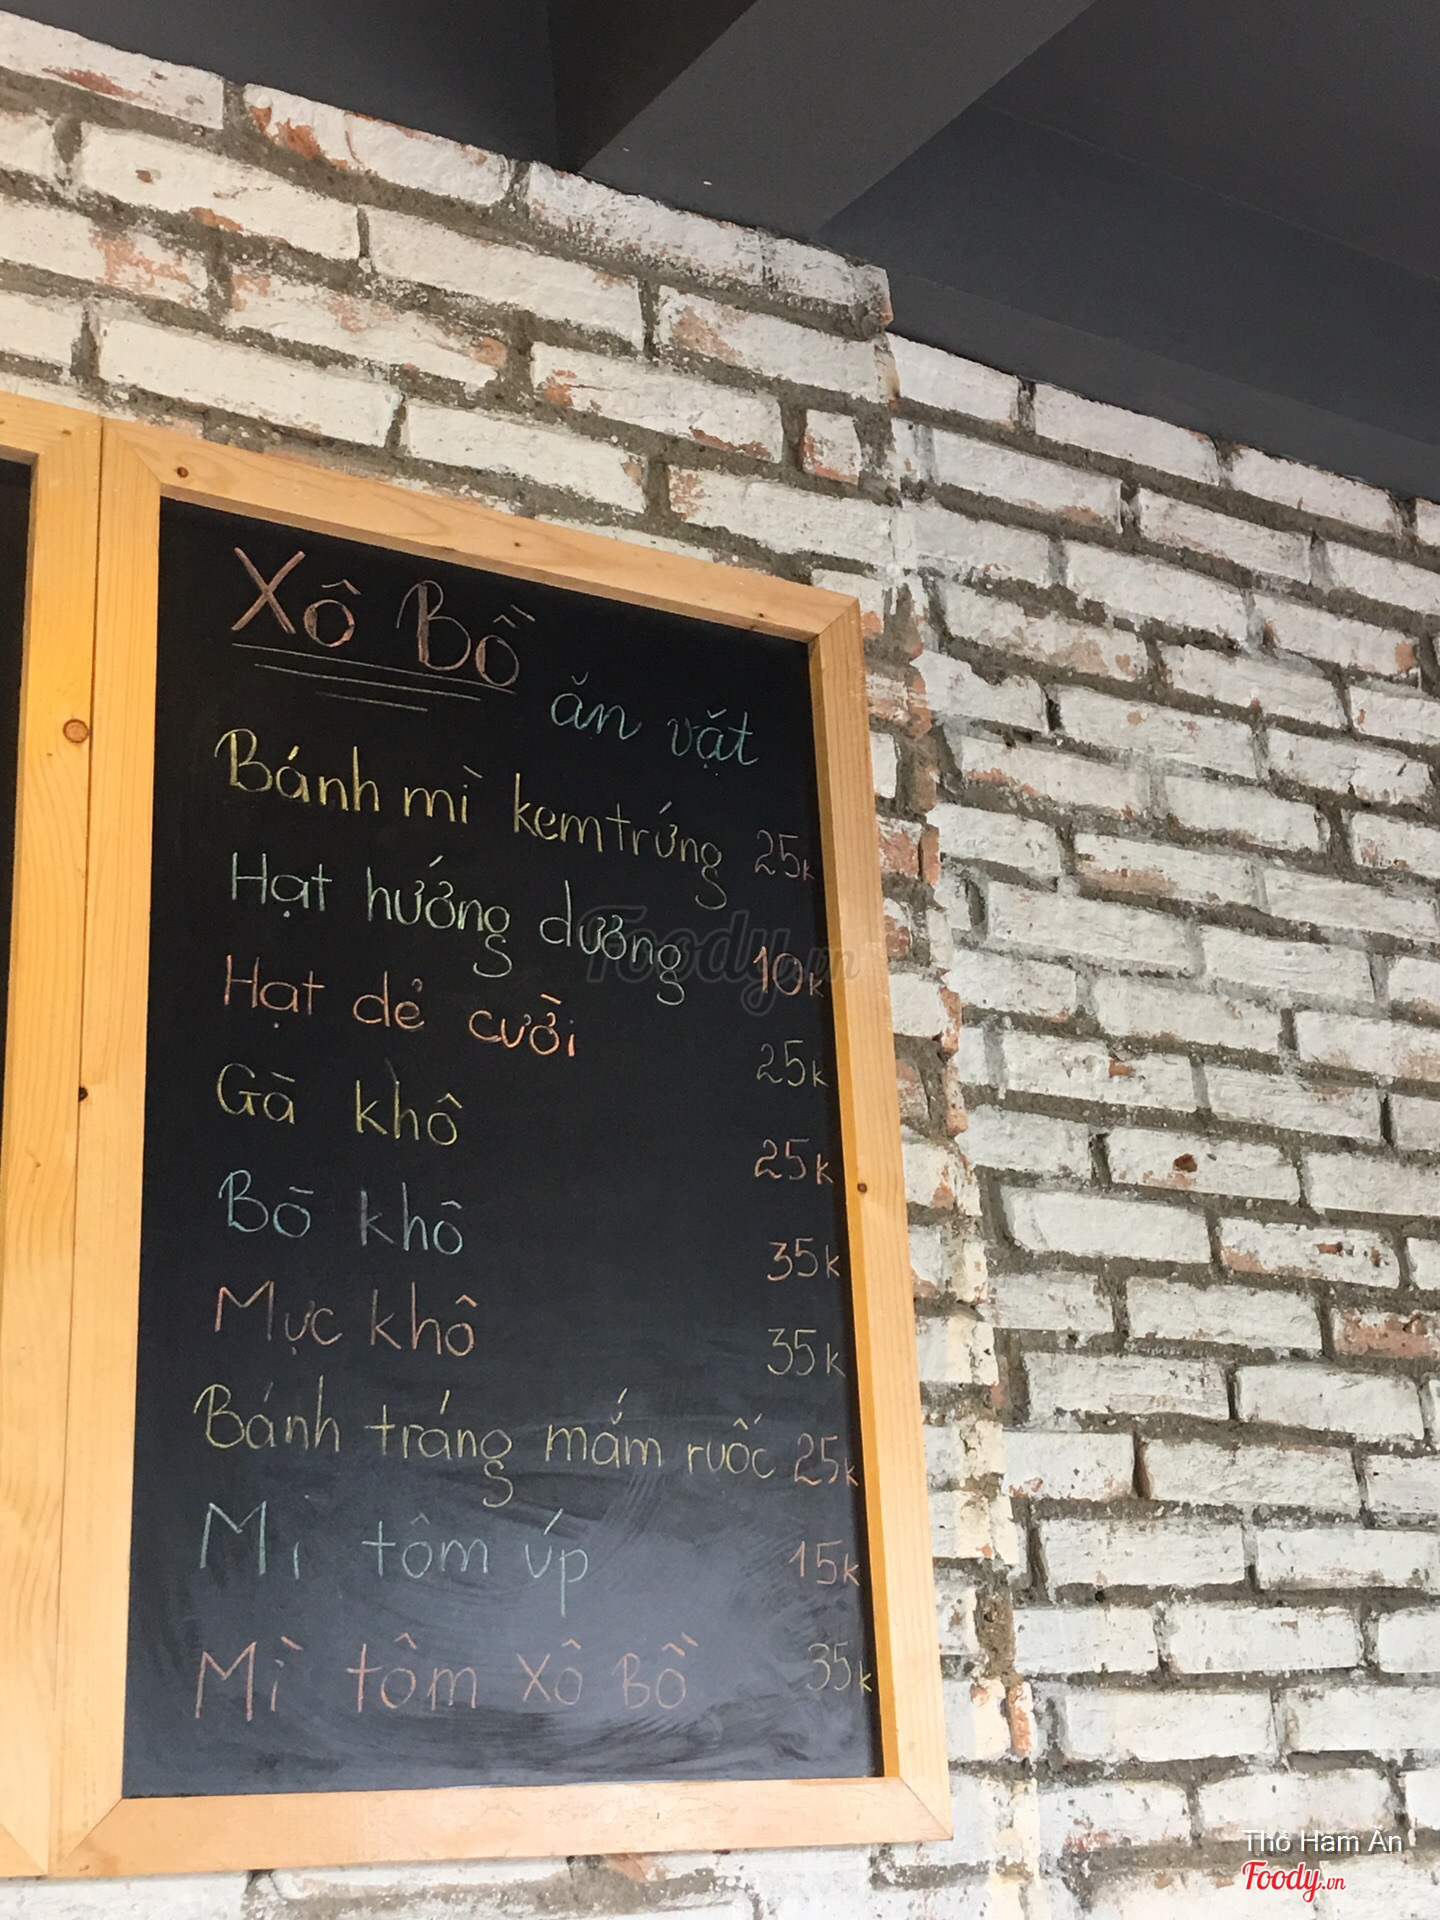 Xô Bồ
ăn vặt
Bánh mì kem trứng 25k
Hạt hướng dương 10k
Hạt dẻ cười 25k
Gà khô 25k
Bò khô 35k
Mực khô 35k
Bánh tráng mắm ruốc 25k
Mì tôm úp 15k
Mì tôm XÔ BỒ 35k
Foody.vn
Thỏ Ham Ăn
Foody.vn